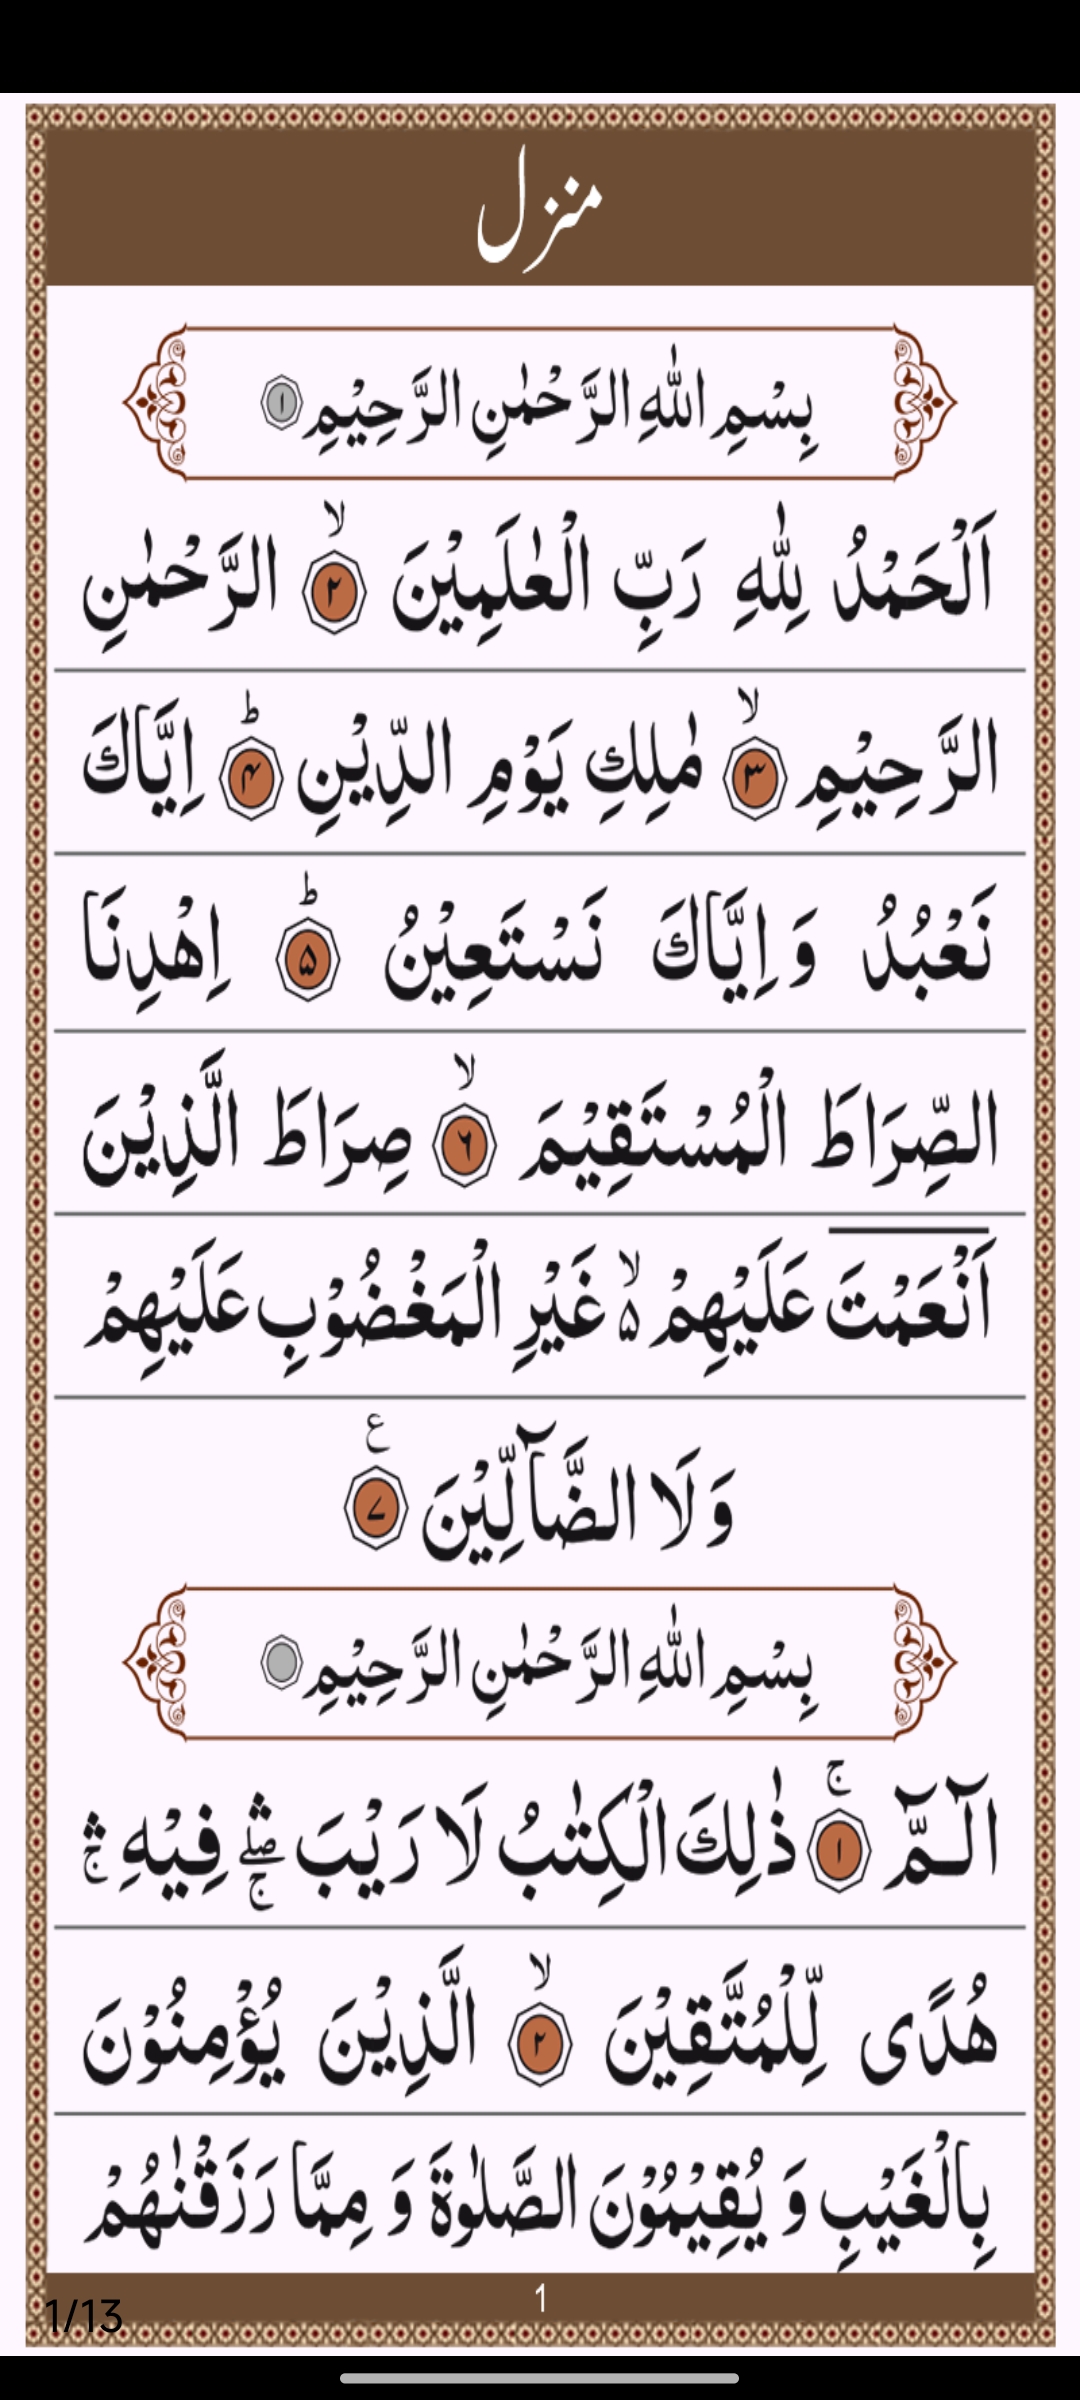 منزل
بِسْمِ اللّٰهِ الرَّحْمٰنِ الرَّحِیْمِ ۱
اَلْحَمْدُ لِلّٰهِ رَبِّ الْعٰلَمِیْنَ ۙ ۲ الرَّحْمٰنِ
الرَّحِیْمِ ۙ ۳ مٰلِكِ یَوْمِ الدِّیْنِ ؕ ۴ اِیَّاكَ
نَعْبُدُ وَ اِیَّاكَ نَسْتَعِیْنُ ؕ ۵ اِهْدِنَا
الصِّرَاطَ الْمُسْتَقِیْمَ ۙ ۶ صِرَاطَ الَّذِیْنَ
اَنْعَمْتَ عَلَیْهِمْ ۙ۵ غَیْرِ الْمَغْضُوْبِ عَلَیْهِمْ
وَ لَا الضَّآلِّیْنَ ۷ ع
بِسْمِ اللّٰهِ الرَّحْمٰنِ الرَّحِیْمِ
الٓـمّٓ ۚ ۱ ذٰلِكَ الْكِتٰبُ لَا رَیْبَ ۛۖۚ فِیْهِ ۛۚ
هُدًی لِّلْمُتَّقِیْنَ ۙ ۲ الَّذِیْنَ یُؤْمِنُوْنَ
بِالْغَیْبِ وَ یُقِیْمُوْنَ الصَّلٰوةَ وَ مِمَّا رَزَقْنٰهُمْ
1
1/13